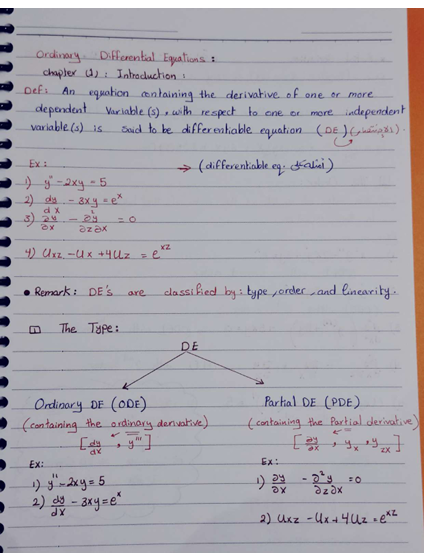 Ordinary Differential Equations :
chapter (1) : Introduction :
Def: An equation containing the derivative of one or more
dependent Variable(s), with respect to one or more independent
variable(s) is said to be differentiable equation (DE)
Ex :
→ (differentiable eq.
1) y'' - 2xy = 5
2) dy/dx - 3xy = e^x
3) ∂y/∂x - ∂²y/∂z∂x = 0
4) Uxz - Ux + 4Uz = e^xz
• Remark: DE's are classified by: type, order, and linearity.
1 The Type:
DE
Ordinary DE (ODE)
(containing the ordinary derivative)
[dy/dx , y''']
Ex:
1) y'' - 2xy = 5
2) dy/dx - 3xy = e^x
Partial DE (PDE)
(containing the Partial derivative)
[∂y/∂x , yx , yzx]
Ex:
1) ∂y/∂x - ∂²y/∂z∂x = 0
2) Uxz - Ux + 4Uz = e^xz